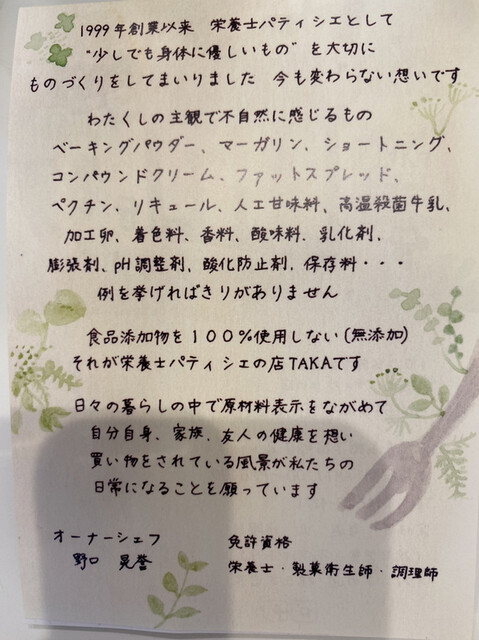 1999年創業以来 栄養士パティシエとして
"少しでも身体に優しいもの" を大切に
ものづくりをしてまいりました 今も変わらない想いです
わたくしの主観で不自然に感じるもの
ベーキングパウダー、マーガリン、ショートニング、
コンパウンドクリーム、ファットスプレッド、
ペクチン、リキュール、人工甘味料、高温殺菌牛乳、
加工卵、着色料、香料、酸味料、乳化剤、
膨張剤、pH調整剤、酸化防止剤、保存料・・・
例を挙げればきりがありません
食品添加物を100%使用しない(無添加)
それが栄養士パティシエの店TAKAです
日々の暮らしの中で原材料表示をながめて
自分自身、家族、友人の健康を想い
買い物をされている風景が私たちの
日常になることを願っています
オーナーシェフ
野口 晃誉
免許資格
栄養士・製菓衛生師・調理師